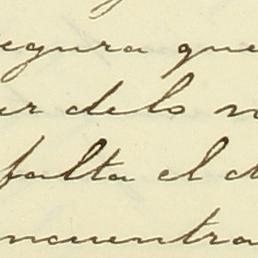 egura que
ar delo
falta el d
ncuentra